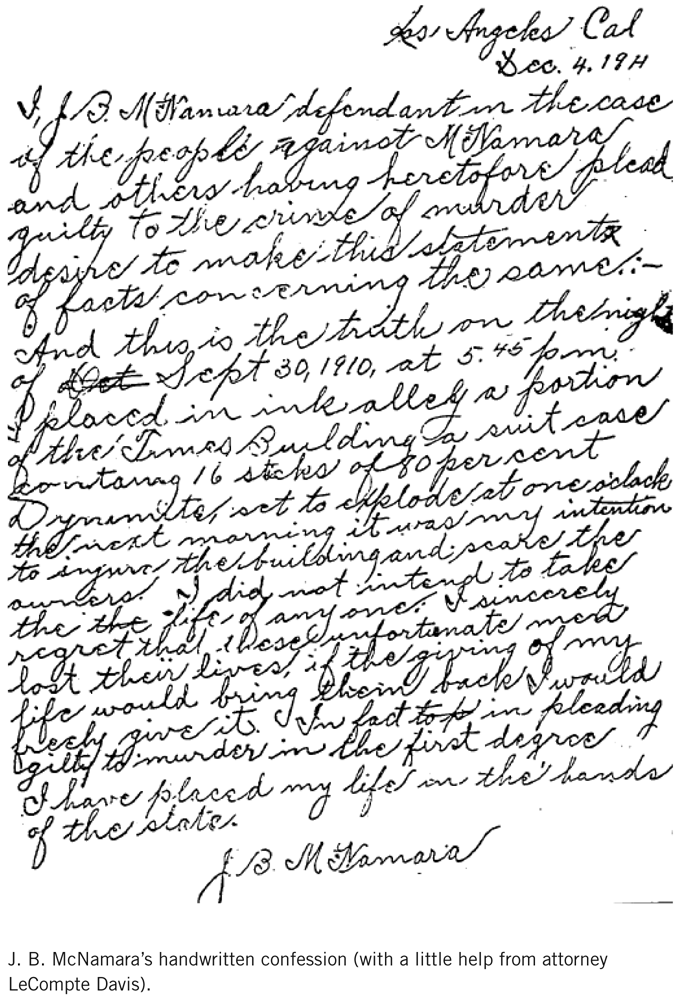 Los Angeles Cal
Dec. 4. 1911
I, J. B. McNamara defendant in the case
of the people against McNamara
and others having heretofore plead
guilty to the crime of murder
desire to make this statement
of facts concerning the same.:-
And this is the truth on the night
of Oct Sept 30, 1910, at 5.45 p.m.
I placed in ink alley a portion
of the Times Building a suit case
16 sticks of 80 per cent
Dynamite, set to explode at one o'clock
the next morning it was my intention
to injure the building and scare the
owners. I did not intend to take
the the life of any one. I sincerely
regret that these unfortunate men
lost their lives, if the giving of my
life would bring them back I would
freely give it. In fact in pleading
gilty to murder in the first degree
I have placed my life in the hands
of the state.
J. B. McNamara
J. B. McNamara's handwritten confession (with a little help from attorney
LeCompte Davis).